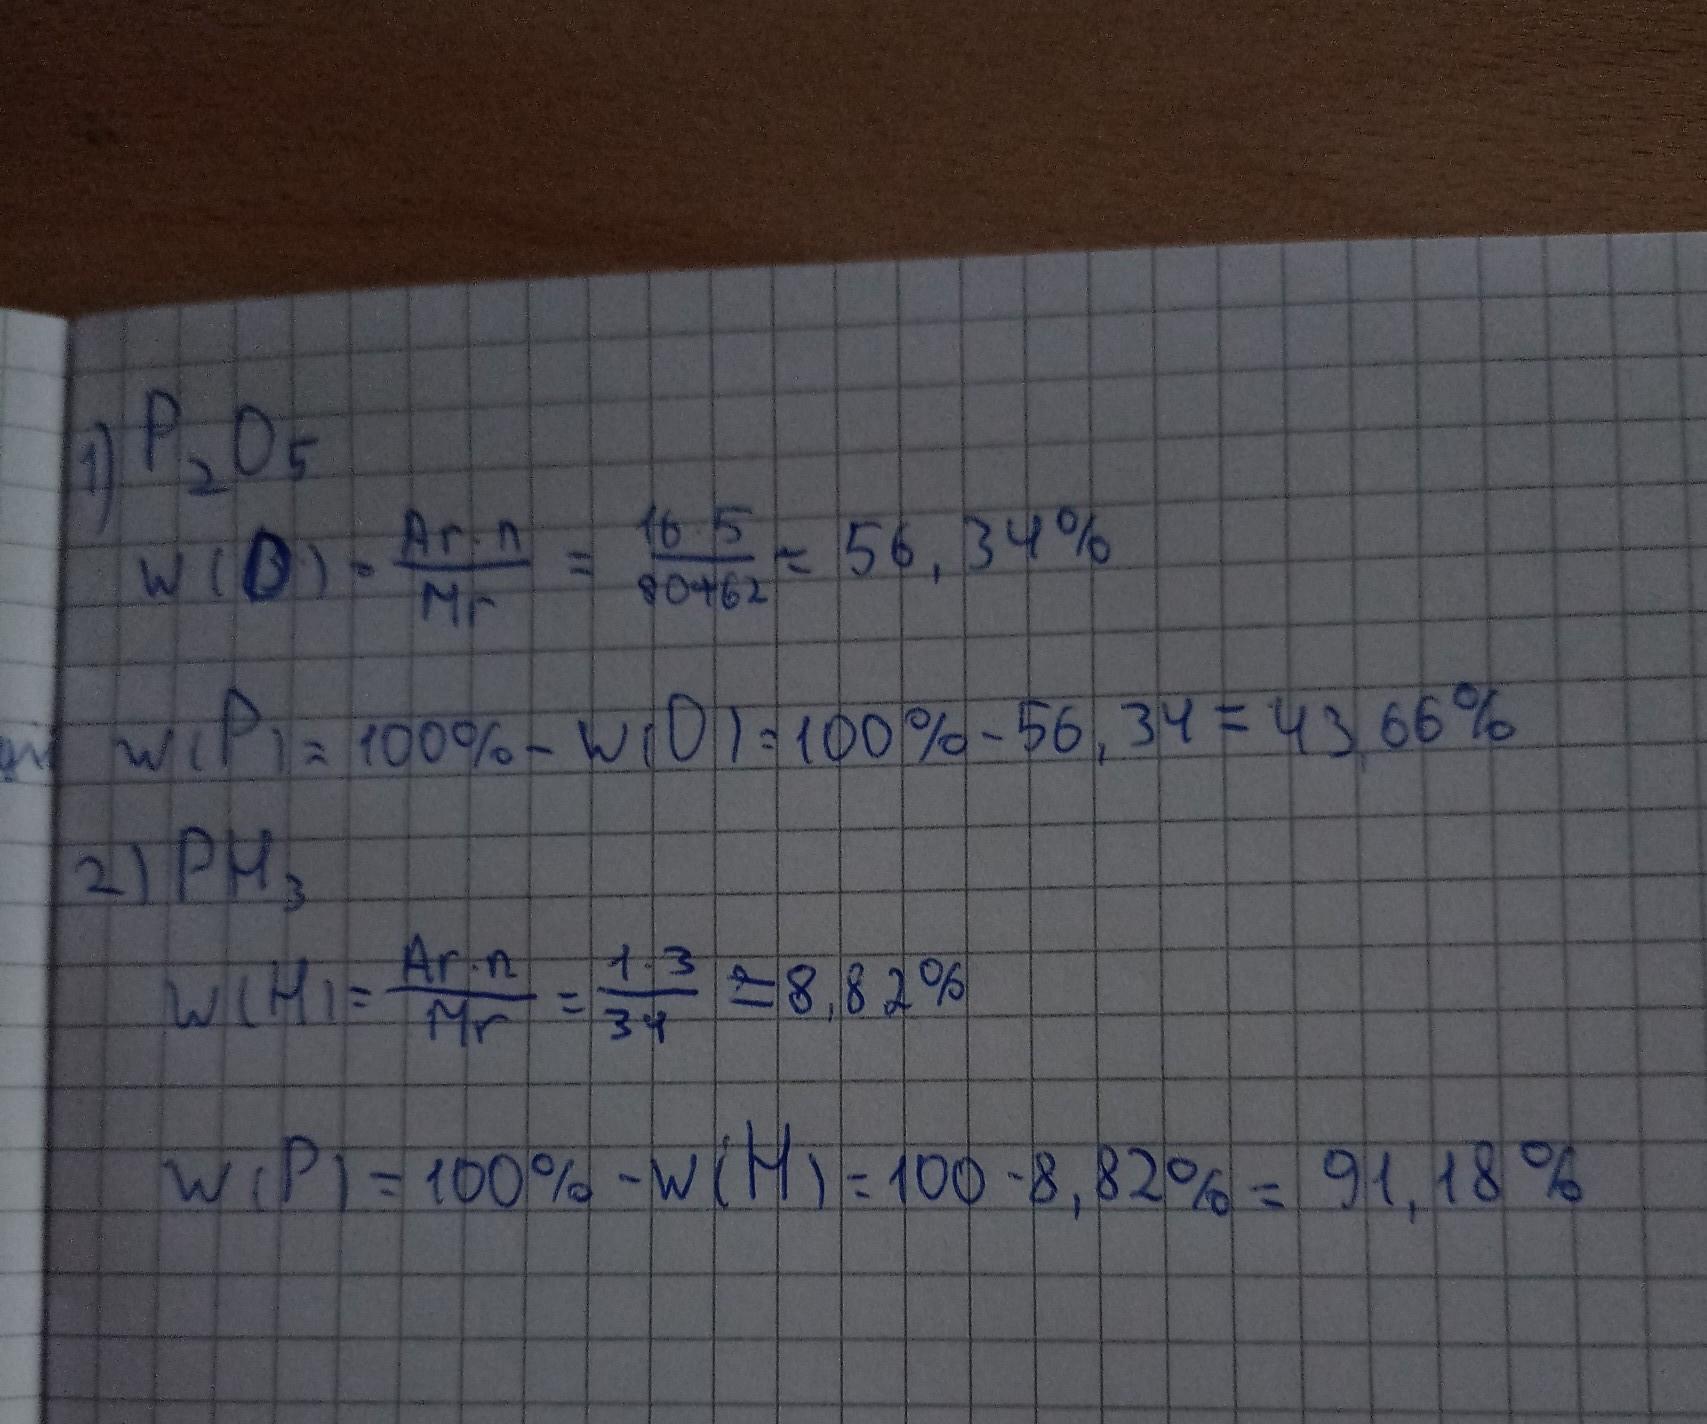 1) P₂O₅
W(O) = Ar·n/Mr = 16·5/80+62 = 56,34%
W(P) = 100% - W(O) = 100% - 56,34 = 43,66%
2) PH₃
W(H) = Ar·n/Mr = 1·3/34 ≃ 8,82%
W(P) = 100% - W(H) = 100 - 8,82% = 91,18%